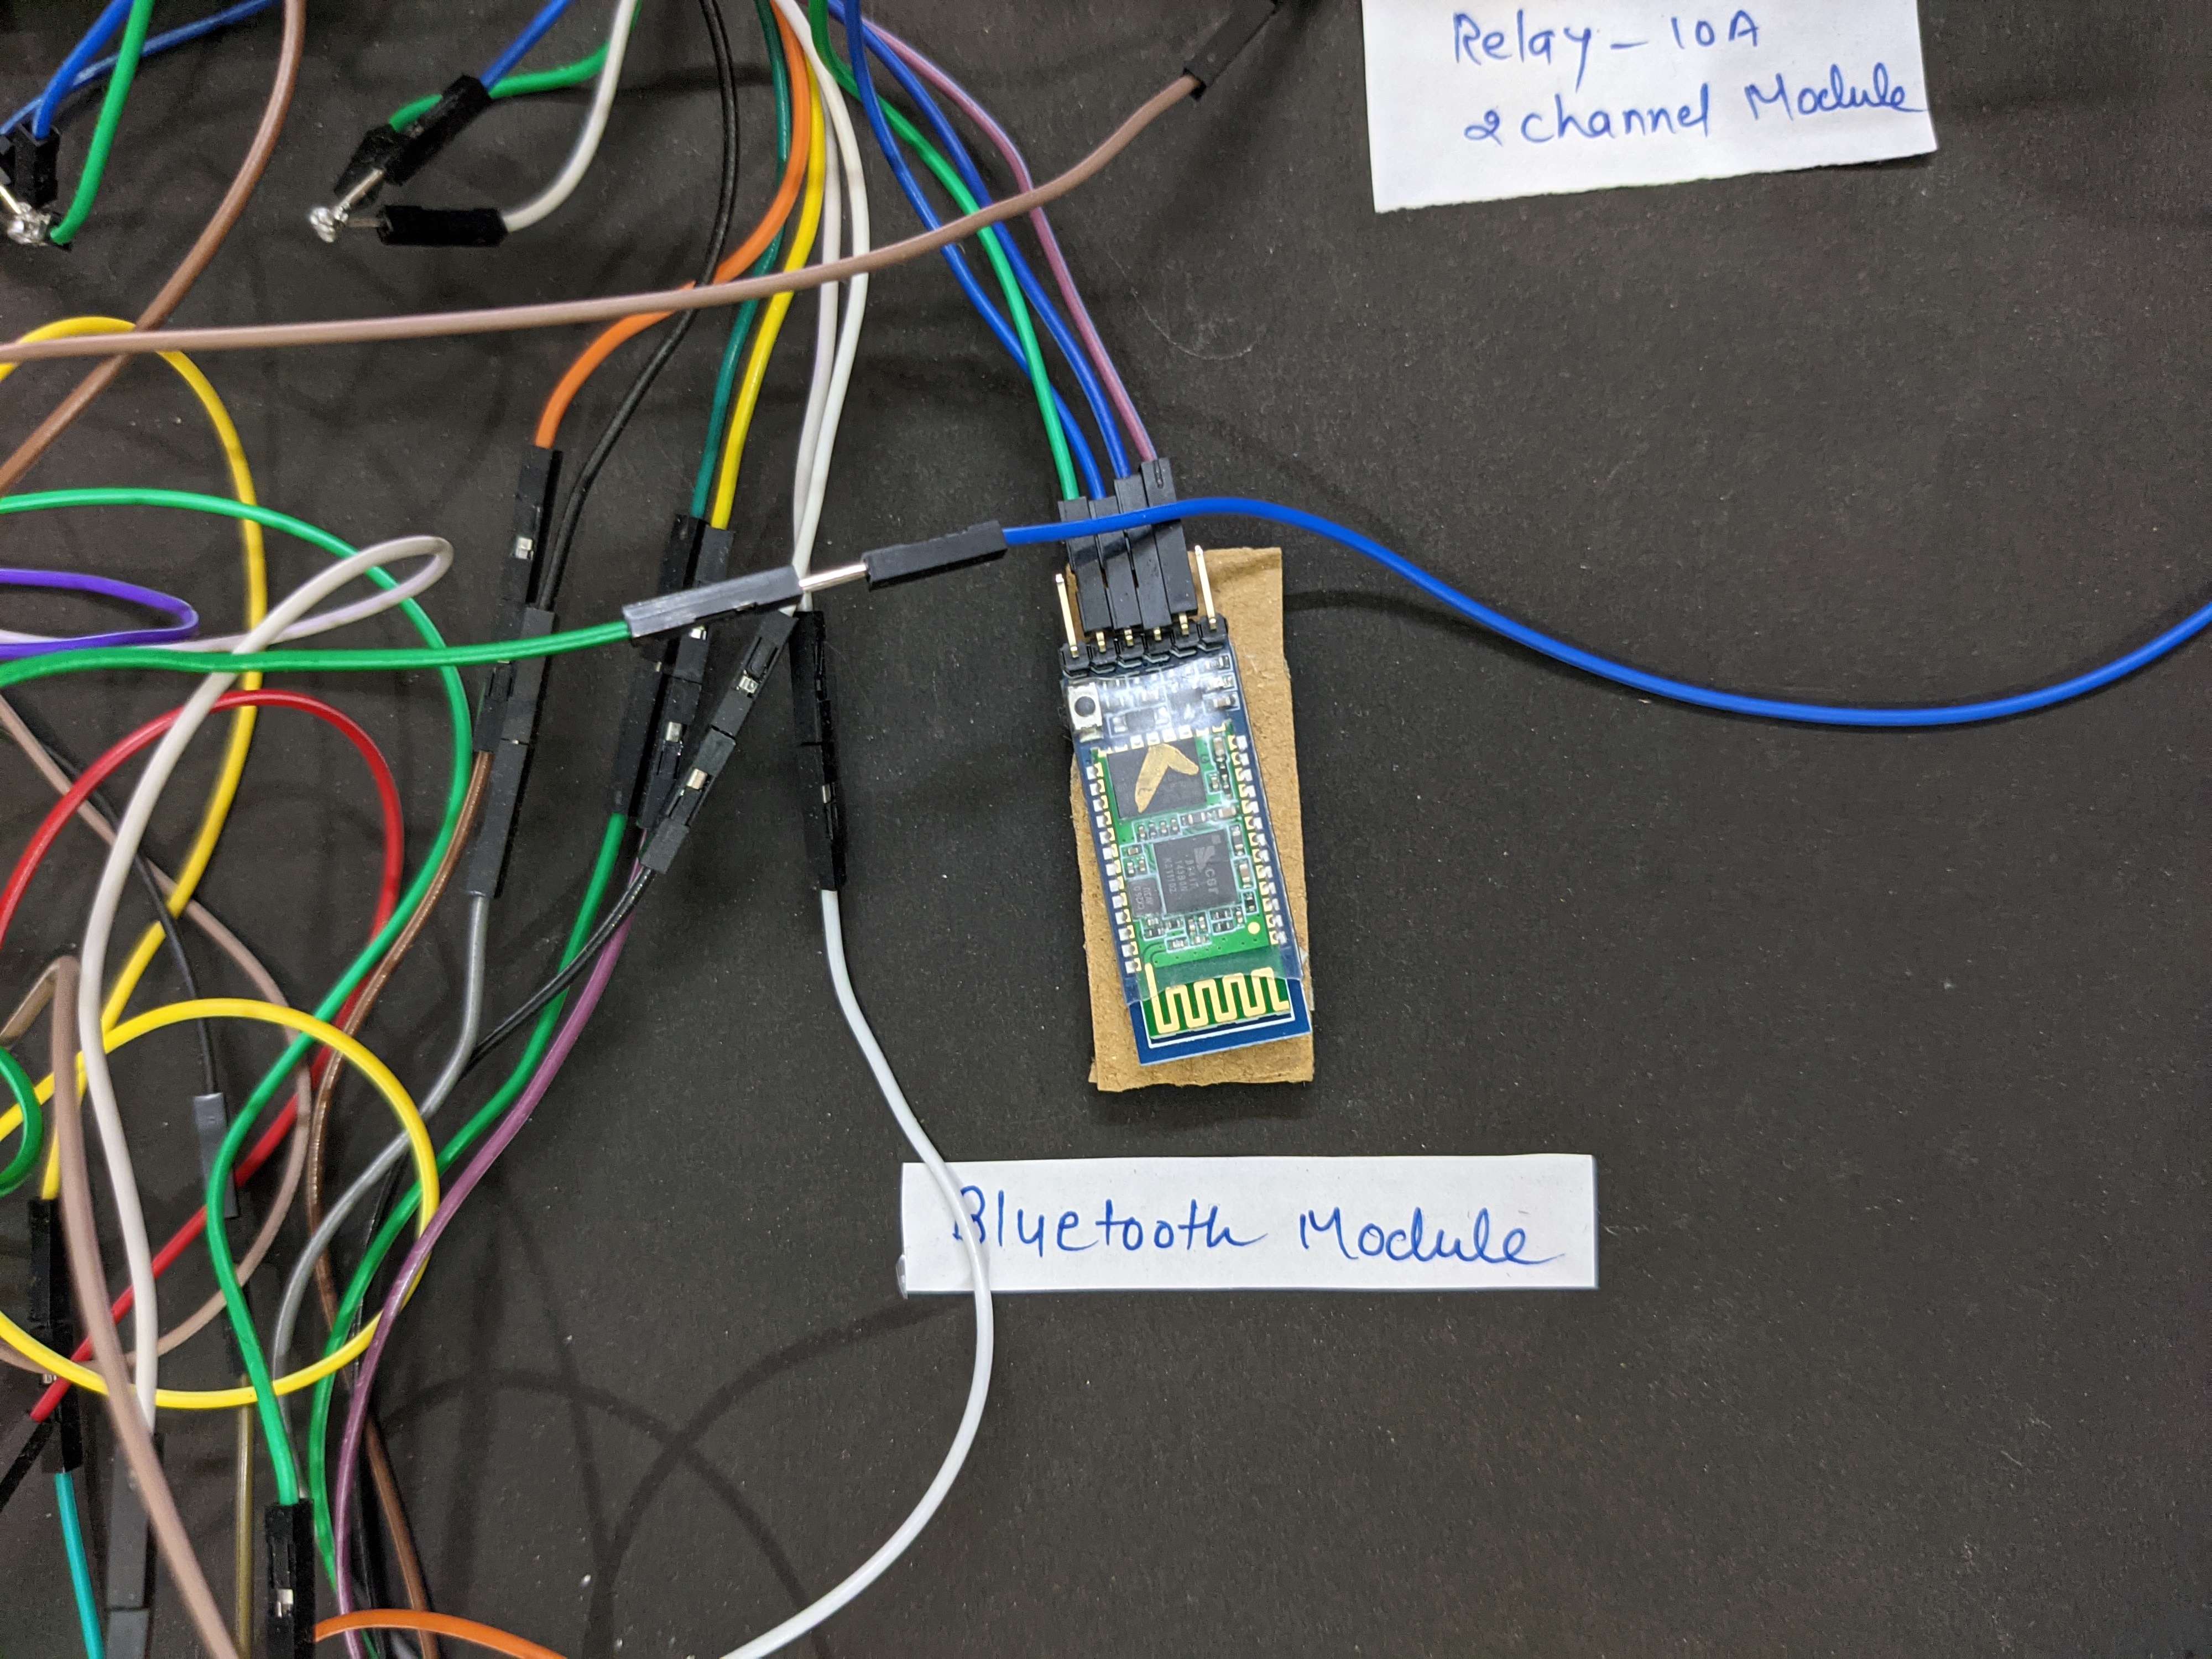 Relay - 10A
2 channel Module
csr
Bluetooth Module